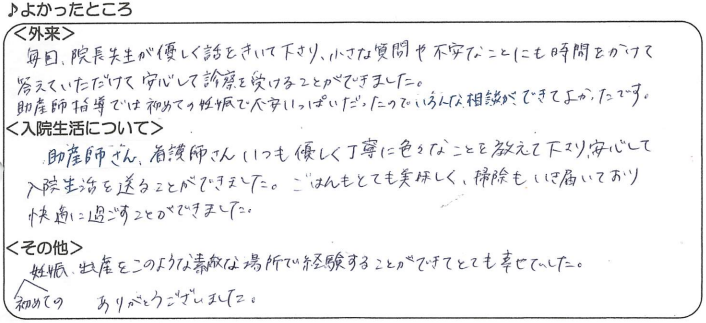 ♪よかったところ
<外来>
毎回、院長先生が優しく話をきいて下さり、小さな質問や不安なことにも時間をかけて
答えていただけて安心して診察を受けることができました。
助産師指導では初めての妊娠で不安いっぱいだったのでいろんな相談ができてよかったです。
<入院生活について>
助産師さん、看護師さんいつも優しく丁寧に色々なことを教えて下さり、安心して
入院生活を送ることができました。ごはんもとても美味しく、掃除もいき届いており
快適に過ごすことができました。
<その他>
妊娠、出産をこのような素敵な場所で経験することができてとても幸せでした。
初めての ありがとうございました。